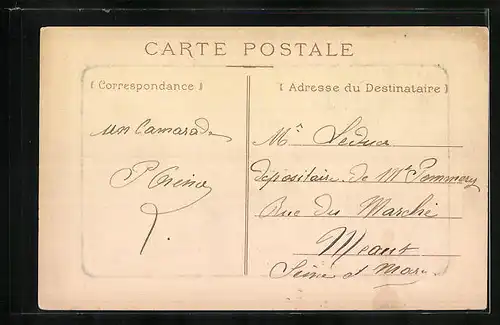 CARTE POSTALE
Correspondance
Adresse du Destinataire
un Camarade
Mr Leduc
dépositaire de Mr Pommery
Rue du Marché
Meaux
Seine et Mar